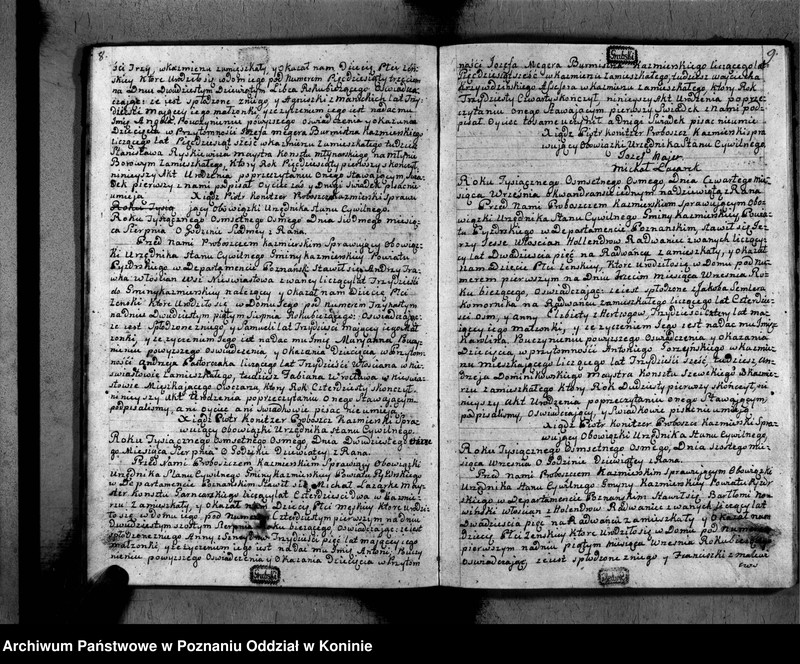 8.
ści Trzy, w kazmierzu zamieszkały, y okazał nam Dziecię Płci żeń-
skiey które urodziło się w domu iego pod Numerem Pięćdziesiątym trzecim
na Dniu Dwudziestym Dziewiątym Lipca Roku bieżącego. Oświadcza
iąc że iest spłodzone z niego y Agnieszki z lat Trzy
dzieści maiącey iego małżonki, y że życzeniem iego iest nadać mu
Imię Po uczynieniu powyższego oświadczenia y okazania
Dziecięcia w Przytomności Jozefa Megera Burmistrza Kazmierskiego
liczącego lat Pięćdziesiąt sześć w kazmierzu zamieszkałego tudzież
Stanisława maystra Konsztu młynarskiego na młynie
Borowym zamieszkałego, który Rok Pięćdziesiąty pierwszy skończył
ninieyszy Akt Urodzenia po przeczytaniu onego Stawaiącym Świa-
dek pierwszy z nami podpisał Oyciec zaś y Drugi Świadek pisać nie
umieją Xiądz Piotr Konitzer Proboszcz Kazmierski Sprawu
iący Obowiązki Urzędnika Stanu Cywilnego.
Roku Tysiącznego Osmsetnego Osmego Dnia Siodmego miesią-
ca Sierpnia O Godzinie Siodmey z Rana.
Przed Nami Proboszczem kazmierskim Sprawuiący Obowiąz-
ki Urzędnika Stanu Cywilnego Gminy kazmierskiey Powiatu
Pyzdrskiego w Departamencie Poznańsk: Stawił się Andrzy
włościan wsi Nieświastowa zwaney liczący lat Trzydzieści
do Gminy kazmierskiey należącey, y okazał nam Dziecię Płci
żeński które urodziło się w Domu Jego pod numerem
na dniu Dwudziestym piątym Sierpnia Roku bieżącego: Oświadczaiąc
że iest spłodzone z niego, y lat Trzydzieści maiącey iego mał
żonki, y że życzeniem Jego iest nadać mu Imię Maryanna. Po uczy-
nieniu powyższego oświadczenia y okazania Dziecięcia w Przytom-
ności Andrzeia liczącego lat Trzydzieści Włościana w nie
świastowie Zamieszkałego, tudzież Fabiana w nieświa-
stowie Mieszkaiącego Owczarza, który Rok Czterdziesty skończył
ninieyszy Akt Urodzenia po przeczytaniu onego Stawaiącym
podpisaliśmy, ani oyciec ani świadkowie pisać nie umieią.
Xiądz Piotr Konitzer Proboszcz Kazmierski Spra
wuiący Obowiązki Urzędnika Stanu Cywilnego.
Roku Tysiącznego Osmsetnego Osmego, Dnia Dwudziestego
go Miesiąca Sierpnia O Godzinie Dziewiątey z Rana.
Przed Nami Proboszczem Kazmierskim Sprawuiący Obowiązki
Urzędnika Stanu Cywilnego Gminy Kazmierskiey Powiatu Pyzdrskiego
w Departamencie Poznańskim Stawił się Michał Łazarek May-
ster Konsztu Garncarskiego liczący lat Czterdzieści dwa w Kazmie-
rzu Zamieszkały, y okazał nam Dziecię Płci męskiey które urodzi-
ło się w domu iego pod Numerem Czterdziestym pierwszym na dniu
Dwudziestym szóstym Sierpnia Roku bieżącego oświadczaiąc że iest
spłodzone z niego Anny z Trzydzieści pięć lat maiącey iego
małżonki, y że życzeniem iego iest nadać mu Imię Antoni, Po uczy
nieniu powyższego Oświadczenia y Okazania Dziecięcia w Przytom
9.
ności Jozefa Megera Burmistrza Kazmierskiego liczącego lat
Pięćdziesiąt sześć w Kazmierzu zamieszkałego, tudzież Woyciecha
w kazmierzu zamieszkałego, który Rok
Trzydziesty Czwarty skończył, ninieyszy Akt Urodzenia po prze-
czytaniu onego Stawaiącym pierwszy Świadek z nami pod-
pisał Oyciec tosamo uczynił A drugi Świadek pisać nieumie
Xiądz Piotr Konitzer Proboszcz Kazmierski spra
wuiący Obowiązki Urzędnika Stanu Cywilnego
Jozef Majer
Michał Łazarek
Roku Tysiącznego Osmsetnego Osmego Dnia Czwartego mie-
siąca Września o kwandransie iednym na dziewiątą z Rana.
Przed Nami Proboszczem Kazmierskim Sprawuiącym Obo-
wiązki Urzędnika Stanu Cywilnego Gminy Kazmierskiey Powia-
tu Pyzdrskiego w Departamencie Poznańskim, stawił się Je-
rzy Jesse Włościan Hollendrow Radwaniec zwanych liczący
lat Dwadzieścia pięć na Radwańcu zamieszkały, y okazał
Nam Dziecię Płci żenskiey, które Urodziło się w Domu pod nu
merem pierwszym na Dniu trzecim miesiąca Września Ro-
ku bieżącego, oświadczaiąc: że iest spłodzone z Jakoba Semlera
Komornika na Radwańcu zamieszkałego liczącego lat Czterdzie-
ści Osm, y anny Elżbiety z Hertwigow, Trzydzieści cztery lat ma-
iącey iego małżonki, y że życzeniem Jego iest nadać mu Imię
Karolina. Po uczynieniu powyższego Oświadczenia y okazania
Dziecięcia w przytomności Antoniego w kazmie-
rzu mieszkaiącego liczącego lat Trzydzieści sześć, tudzież An-
drzeia Dominikowskiego Maystra Konsztu Szewckiego w Kazmie-
rzu zamieszkałego który Rok Dwudziesty pierwszy skończył, ni
nieyszy Akt Urodzenia po przeczytaniu onego Stawaiącym
podpisaliśmy, Oświadczaiący, y świadkowie pisać nie umieją
Xiądz Piotr Konitzer Proboszcz Kazmierski Spra-
wuiący Obowiązki Urzędnika Stanu Cywilnego,
Roku Tysiącznego Osmsetnego Osmego, Dnia szóstego mie-
siąca Września O Godzinie Dziewiątey z Rana.
Przed Nami Proboszczem Kazmierskim Sprawuiącym Obowiązki
Urzędnika Stanu Cywilnego Gminy Kazmierskiey Powiatu Pyzdr-
skiego w Departamencie Poznańskim Stawił się Bartłomi No-
wiński Włościan z Holendrow Radwaniec zwanych liczący lat
Dwadzieścia pięć na Radwańcu zamieszkały y okazał nam
Dziecię Płci żenskiey które Urodziło się w Domu pod numerem
pierwszym na dniu piątym miesiąca Września Roku bieżącego
oświadczaiąc że iest spłodzone z niego y Franciszki z
Archiwum Państwowe w Poznaniu Oddział w Koninie